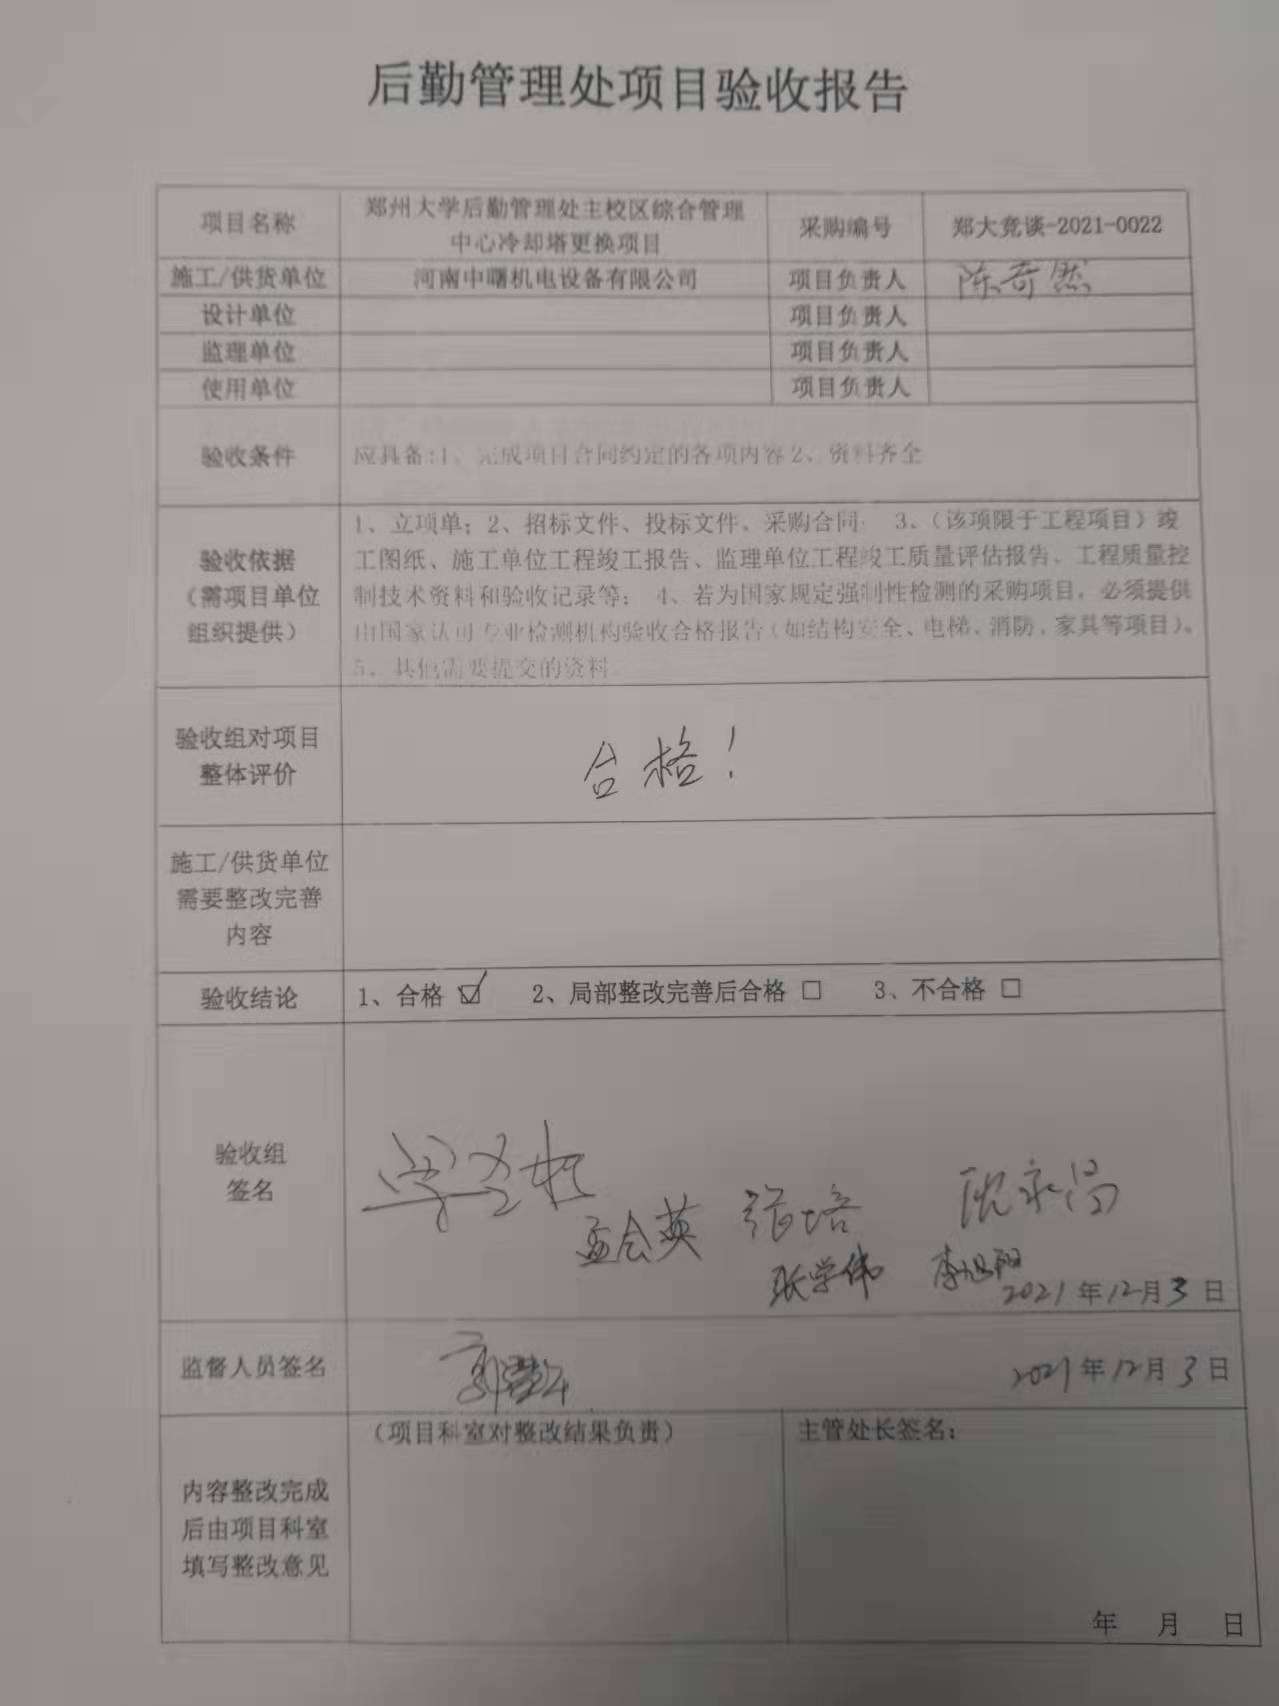 后勤管理处项目验收报告
项目名称
郑州大学后勤管理处主校区综合管理
中心冷却塔更换项目
采购编号
郑大竞谈-2021-0022
施工/供货单位
河南中曙机电设备有限公司
项目负责人
陈奇然
设计单位
项目负责人
监理单位
项目负责人
使用单位
项目负责人
验收条件
应具备:1、完成项目合同约定的各项内容 2、资料齐全
验收依据
（需项目单位
组织提供）
1、立项单；2、招标文件、投标文件、采购合同； 3、（该项限于工程项目）竣
工图纸、施工单位工程竣工报告、监理单位工程竣工质量评估报告、工程质量控
制技术资料和验收记录等； 4、若为国家规定强制性检测的采购项目，必须提供
由国家认可专业检测机构验收合格报告（如结构安全、电梯、消防、家具等项目）。
5、其他需要提交的资料
验收组对项目
整体评价
合格！
施工/供货单位
需要整改完善
内容
验收结论
1、合格 ☑ 2、局部整改完善后合格 □ 3、不合格 □
验收组
签名
孟会英 张培
张学伟 李旭阳
2021年12月3日
监督人员签名
2021年12月3日
内容整改完成
后由项目科室
填写整改意见
（项目科室对整改结果负责）
主管处长签名：
年 月 日